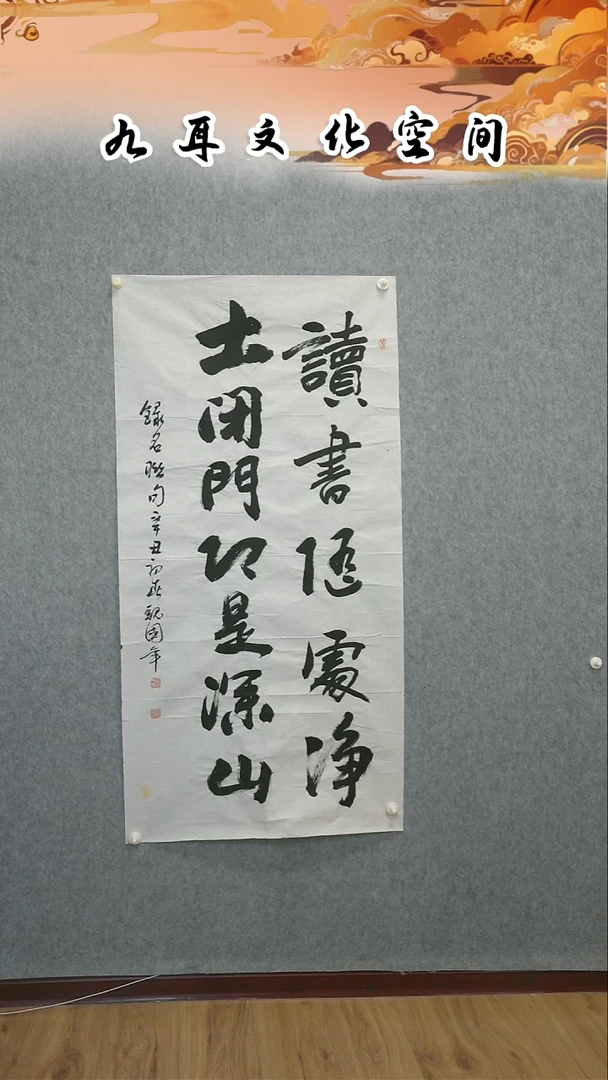 九耳文化空间
讀書随處净
土闭門即是深山
録名聯句辛丑初春魏國年